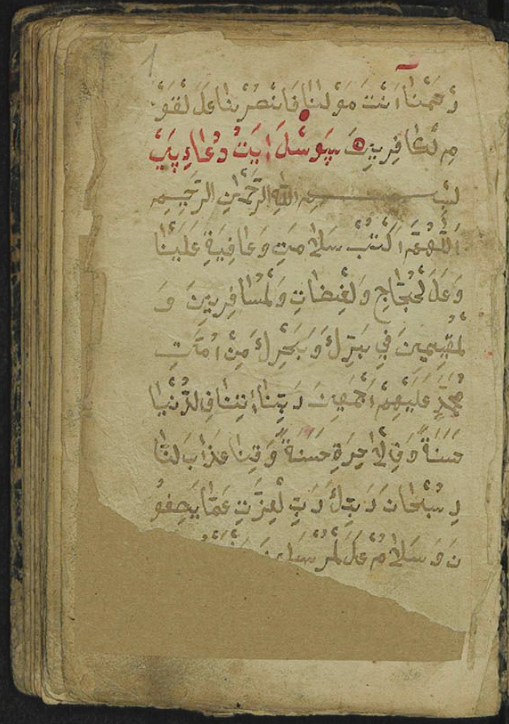 وَحَمْنَا اَنْتَ مَوْلٰىنَا فَانْصُرْنَا عَلَ لْقَوْ
مِ لْكَافِرِينَ سٖوشَلَ اَيَتْ دُعَاءِ
بسم اللهِ الرَّحْمٰنِ الرَّحِيمِ
اَللّٰهُمَّ اكْتُبْ سَلَامَتِ وَعَافِيَةِ عَلَيْنَا
وَعَلَ لْحُجَّاجِ وَلْغِضَاتِ وَلْمُسَافِرِينَ وَ
لْمُقِيمِينَ فِي بَرِّكَ وَبَحْرِكَ مِنْ اُمَّتِ
مُحَمَّدٍ عَلَيْهِمْ اَجْمَعِينَ رَبَّنَا اٰتِنَا فِ لدُّنْيَا
حَسَنَةً وَفِ لْاٰخِرَةِ حَسَنَةً وَقِنَا عَذَابَ لنَّا
رِ سُبْحَانَ رَبِّكَ رَبِّ لْعِزَّتِ عَمَّا يَصِفُو
نَ وَسَلَامُ عَلَ لْمُرْسَلِينَ